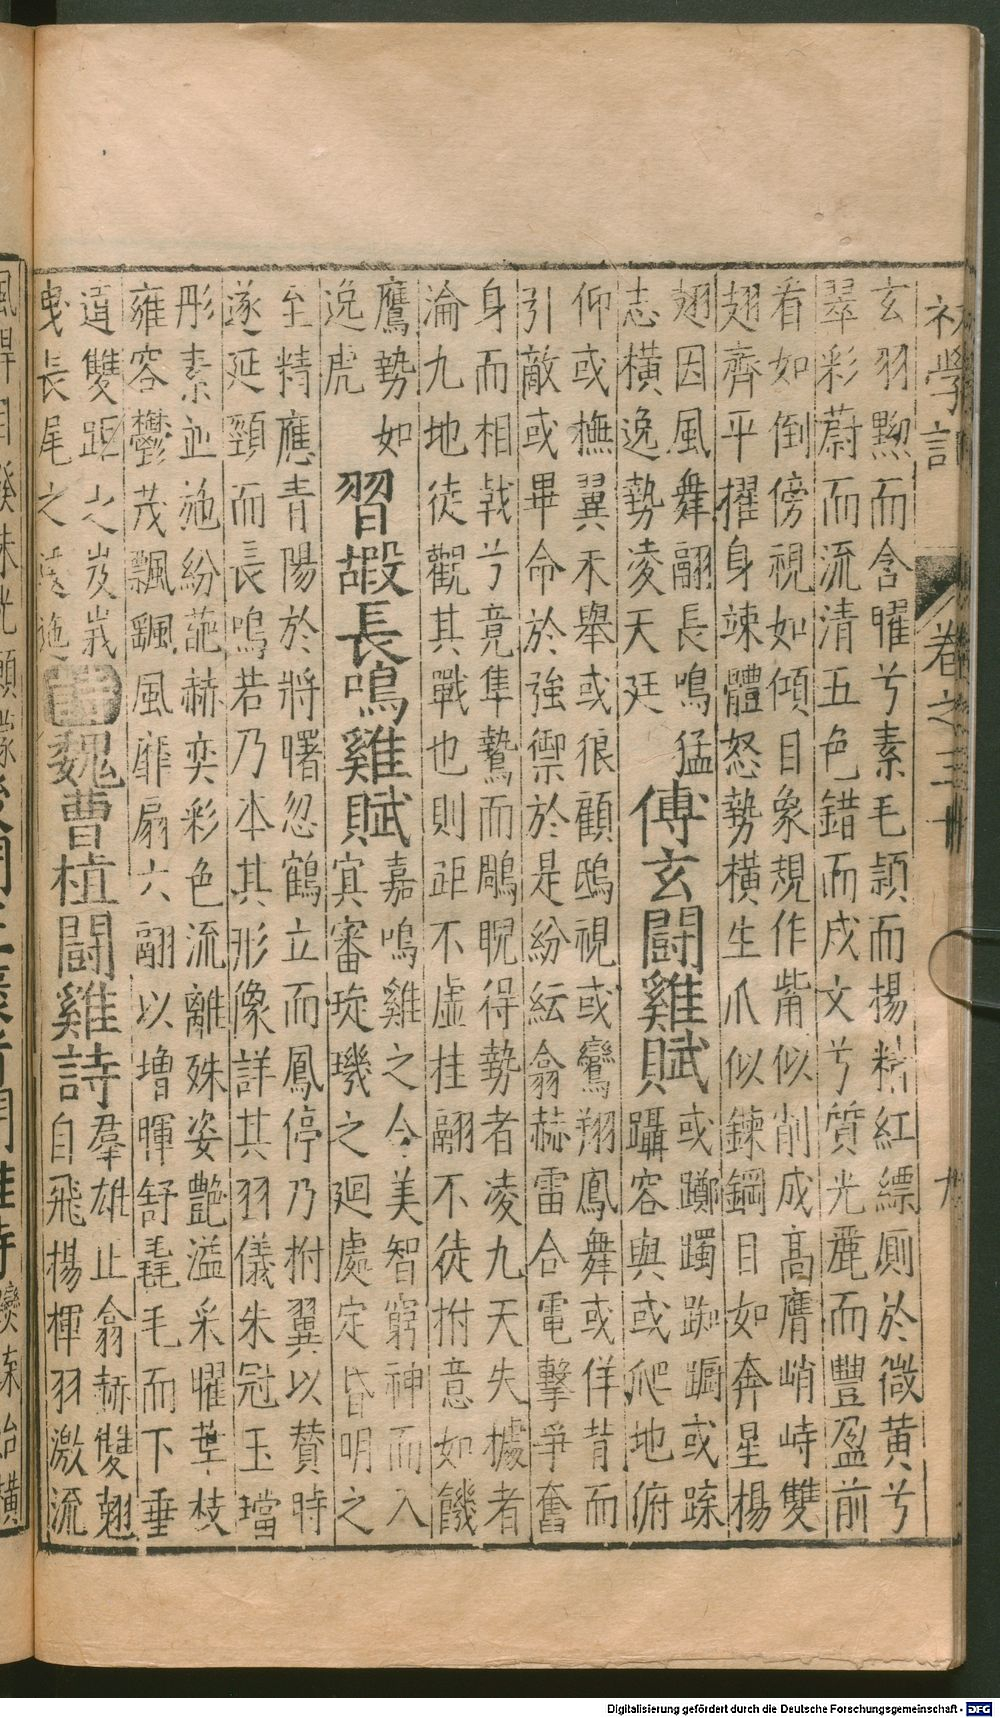 初學記
卷之三十
九
玄羽黝而含曜兮素毛穎而揚精紅縹厠於微黄兮
翠彩蔚而流清五色錯而成文兮質光麗而豐盈前
看如倒傍視如傾目象規作觜似削成高膺峭峙雙
翅齊平擢身竦體怒勢横生爪似鍊鋼目如奔星楊
翅因風舞翮長鳴猛
志横逸勢凌天廷
傅玄鬭雞賦
或躑躅踟蹰或蹀
躡容與或爬地俯
仰或撫翼未舉或狼顧鴟視或鸞翔鳳舞或佯背而
引敵或畢命於強禦於是紛紜翕赫雷合電擊爭奮
身而相戟兮竟隼鷙而鵰睨得勢者凌九天失據者
淪九地徒觀其戰也則距不虛挂翮不徒拊意如饑
鷹勢如
逸虎
習嘏長鳴雞賦
嘉鳴雞之令美智窮神而入
㝠審琁璣之廻處定昏明之
至精應青陽於將曙忽鶴立而鳳停乃拊翼以贊時
遂延頸而長鳴若乃本其形像詳其羽儀朱冠玉璫
彤素並施紛葩赫奕彩色流離殊姿艷溢采曜華枝
雍容鬱茂飄颻風靡扇六翮以増暉舒毳毛而下垂
違雙距之岌峩
曳長尾之逶迤
詩
魏曹植鬭雞詩
羣雄正翕赫雙翹
自飛揚揮羽激流